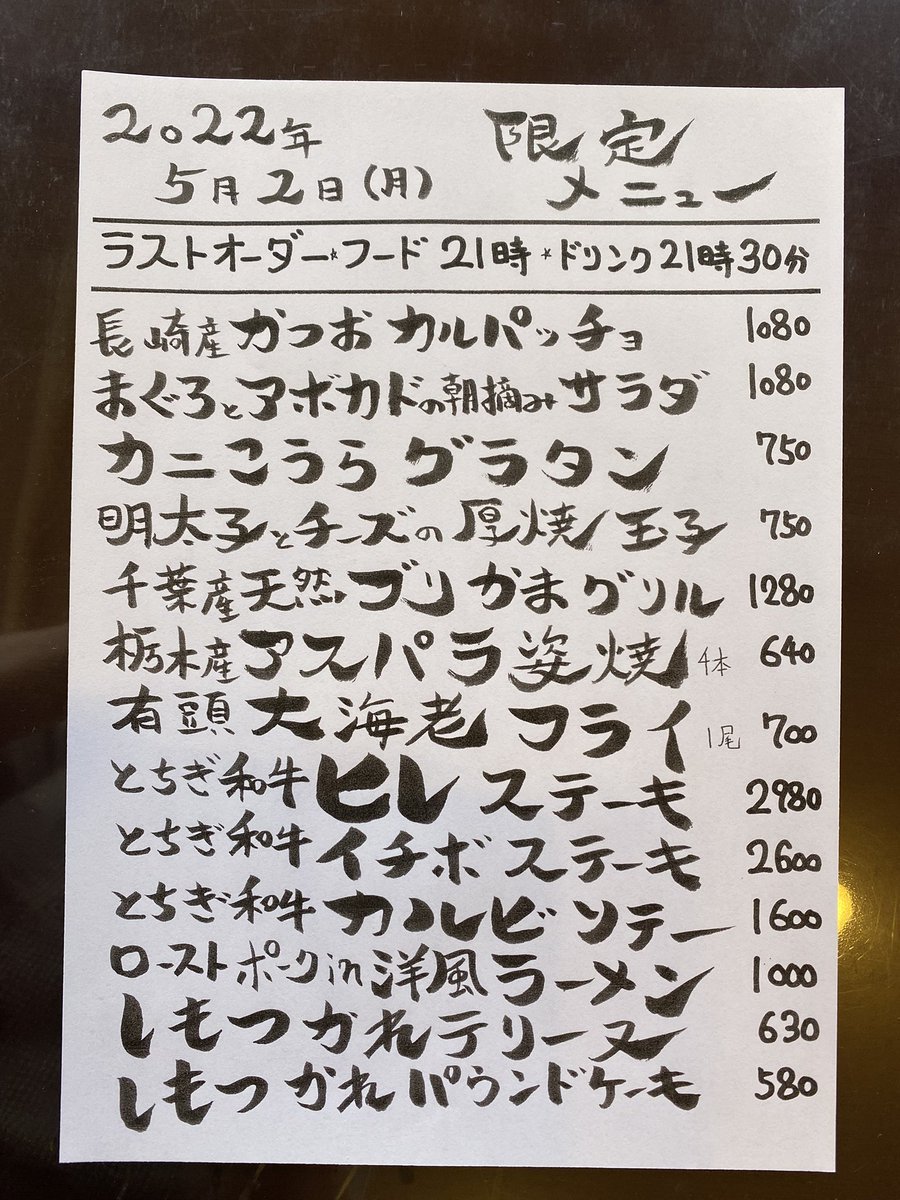 2022年
5月2日(月)
限定
メニュー
ラストオーダー*フード 21時 *ドリンク21時30分
長崎産かつおカルパッチョ 1080
まぐろとアボカドの朝摘みサラダ 1080
カニこうらグラタン 750
明太子とチーズの厚焼玉子 750
千葉産天然ブリかまグリル 1280
栃木産アスパラ姿焼 4本 640
有頭大海老フライ 1尾 700
とちぎ和牛ヒレステーキ 2980
とちぎ和牛イチボステーキ 2600
とちぎ和牛カルビソテー 1600
ローストポークin洋風ラーメン 1000
しもつかれテリーヌ 630
しもつかれパウンドケーキ 580